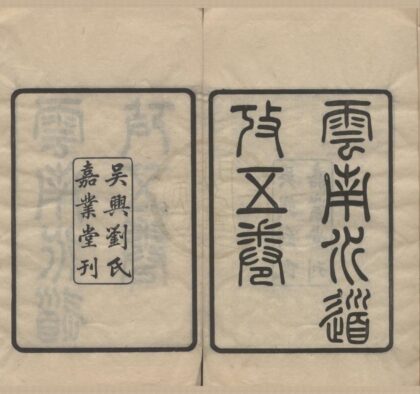 雲南水道
攷五卷
吳興劉氏
嘉業堂刊